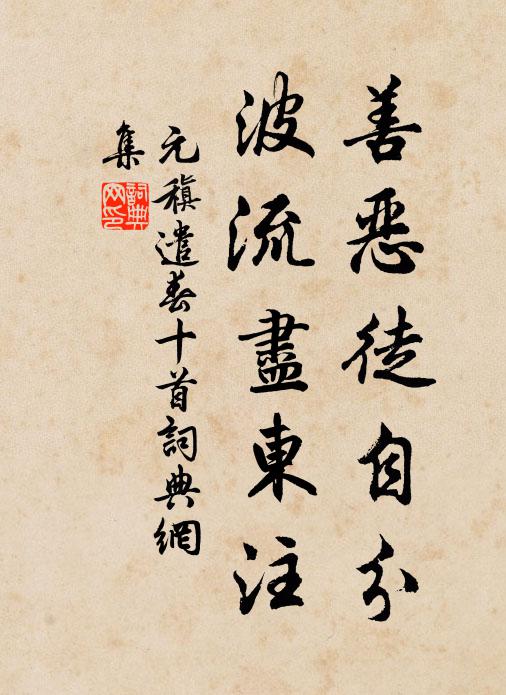 善惡徒自分
波流盡東注
元稹遣春十首詞典網
集
詞典
网印